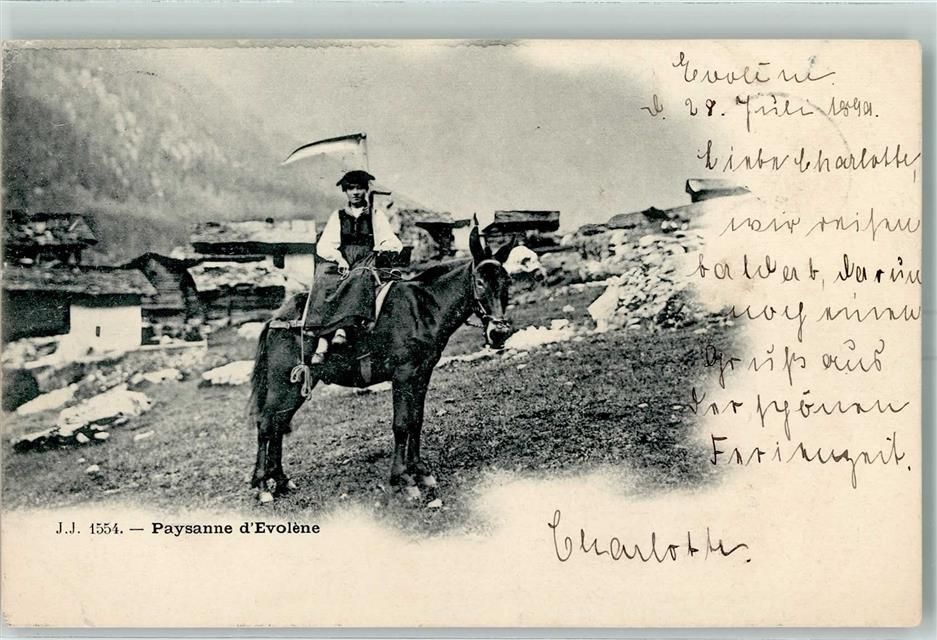 Evolène
d. 28. Juli 1899.
Liebe Charlotte,
wir reisen
bald ab, darum
noch einen
Gruß aus
der schönen
Ferienzeit.
Charlotte.
J.J. 1554. — Paysanne d'Evolène